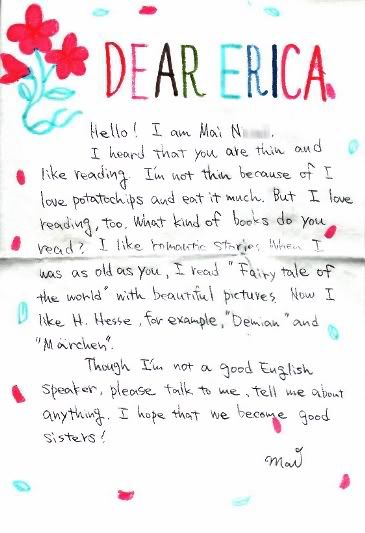 DEAR ERICA
Hello! I am Mai N
I heard that you are thin and
like reading. I'm not thin because of I
love potatochips and eat it much. But I love
reading, too. What kind of books do you
read? I like romantic stories. When I
was as old as you, I read "Fairy tale of
the world" with beautiful pictures. Now I
like H. Hesse, for example, "Demian" and
"Märchen".
Though I'm not a good English
speaker, please talk to me, tell me about
anything. I hope that we become good
sisters!
Mai